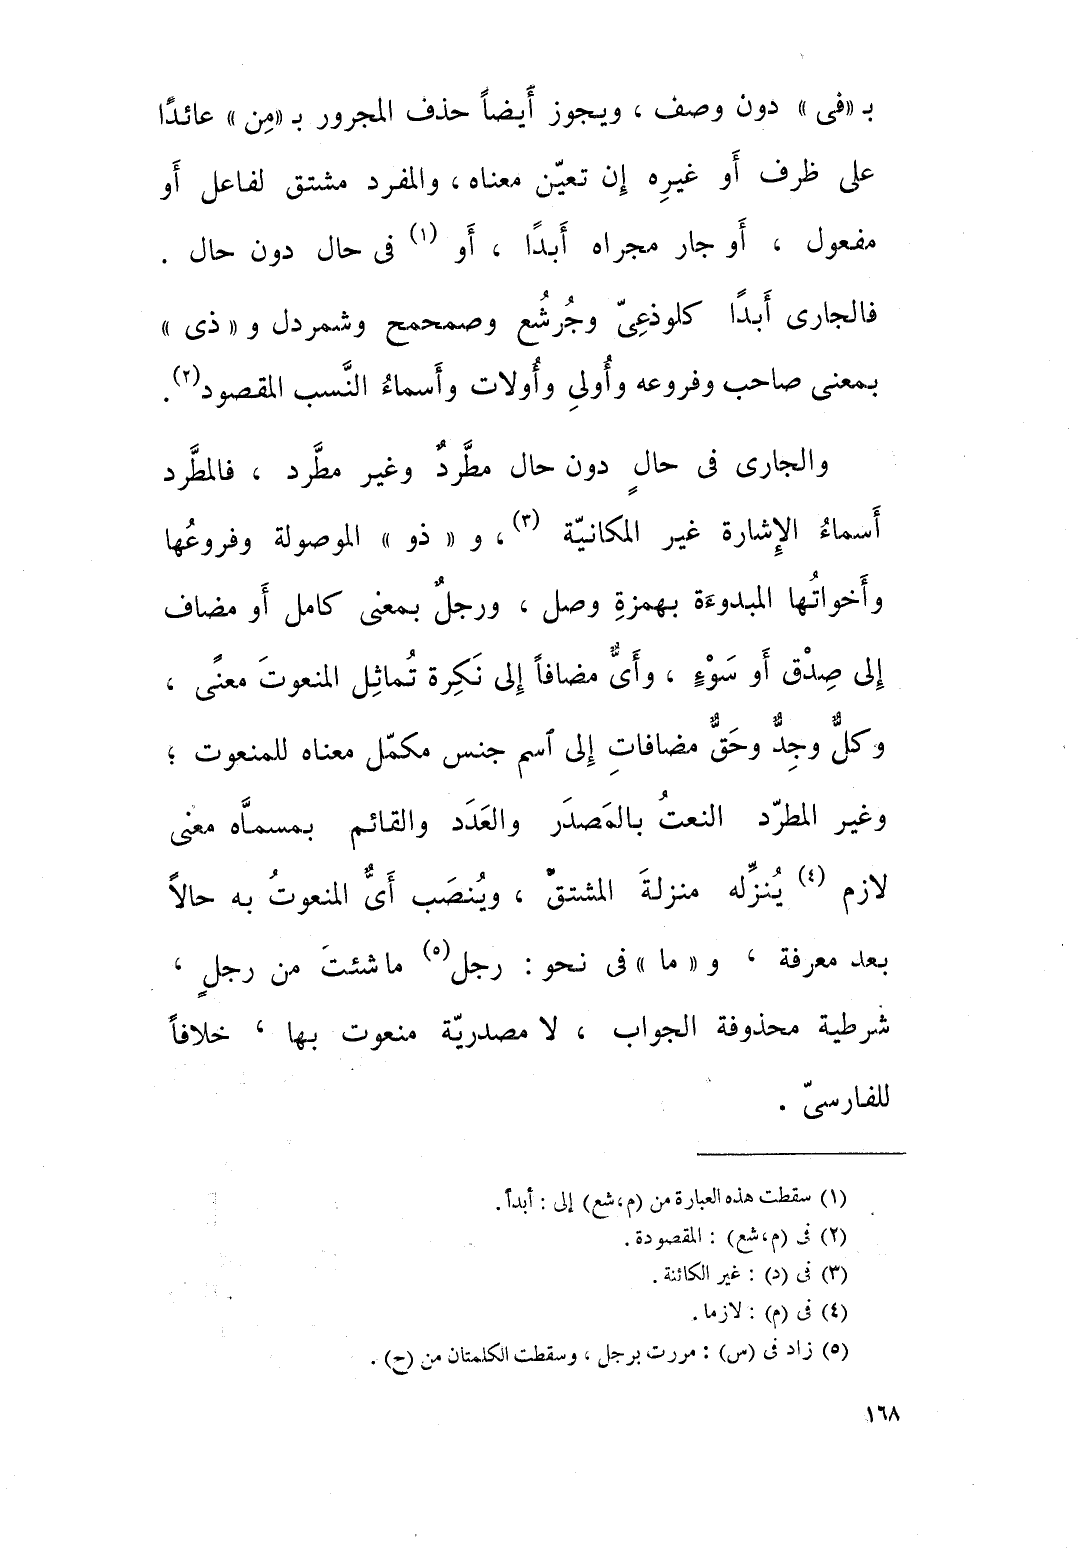 بـ «فى» دون وصف ، ويجوز أَيضاً حذف المجرور بـ «مِن» عائدًا
على ظرف أَو غيرِه إِن تعيّن معناه، والمفرد مشتق لفاعل أَو
مفعول ، أَو جار مجراه أَبدًا ، أَو (١) فى حال دون حال .
فالجارى أَبدًا كلوذعِىّ وجُرشُع وصمحمح وشمردل و « ذى »
بمعنى صاحب وفروعه وأُولىِ وأُولات وأَسماءُ النَّسب المقصود(٢).
والجارى فى حالٍ دون حال مطَّردٌ وغير مطَّرد ، فالمطَّرد
أَسماءُ الإِشارة غير المكانيّة (٣)، و « ذو » الموصولة وفروعُها
وأَخواتُها المبدوءَة بهمزةِ وصل ، ورجلٌ بمعنى كامل أَو مضاف
إِلى صِدْق أَو سَوْءٍ ، وأَىٌّ مضافاً إِلى نَكِرة تُماثِل المنعوتَ معنًى ،
وكلٌّ وجِدٌّ وحَقٌّ مضافاتِ إِلى ٱسم جنس مكمّل معناه للمنعوت ؛
وغير المطرّد النعتُ بالمَصدَر والعَدَد والقائم بمسماَّه معنى
لازم (٤) يُنزِّله منزلةَ المشتقّ ، ويُنصَب أَىٌّ المنعوتُ به حالاً
بعد معرفة ، و « ما » فى نحو : رجل(٥) ماشئتَ من رجلٍ ،
شرطية محذوفة الجواب ، لا مصدريّة منعوت بها ، خلافاً
للفارسىّ .
(١) سقطت هذه العبارة من (م،شع) إلى : أبداً.
(٢) فى (م،شع) : المقصودة .
(٣) فى (د) : غير الكائنة .
(٤) فى (م) : لازما .
(٥) زاد فى (س) : مررت برجل ، وسقطت الكلمتان من (ح) .
١٦٨